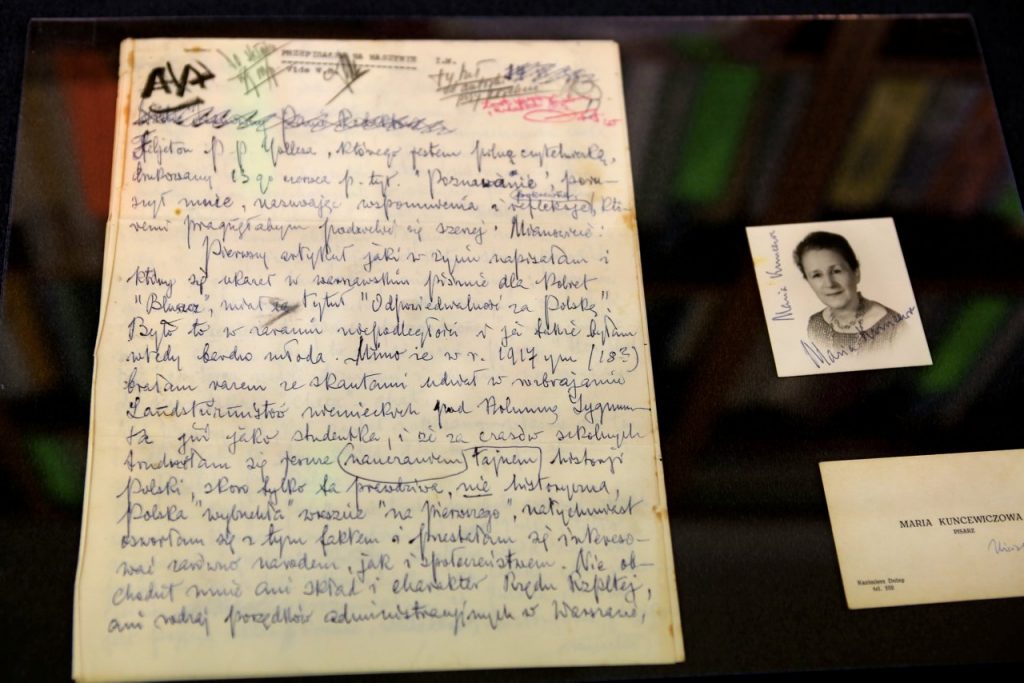 PRZEPISANO NA MASZYNIE
Feljeton p. p. , którego jestem pilną czytelniczką,
drukowany 13-go czerwca p. tyt. "Poznawanie", poru-
szył mnie, nasuwając wspomnienia i refleksje, któ-
remi pragnęłabym podzielić się szerzej. Mianowicie:
Pierwszy artykuł jaki w życiu napisałam i
który się ukazał w warszawskim piśmie dla kobiet
"Bluszcz", miał tytuł "Odpowiedzialność za Polskę".
Było to w zaraniu niepodległości i ja także byłam
wtedy bardzo młoda. Mimo że w r. 1917ym (18?)
brałam razem ze skautami udział w rozbrajaniu
Landsturmistów niemieckich pod Kolumną Zygmun-
ta już jako studentka, i że za czasów szkolnych
trudniłam się nauczaniem tajnem historji
Polski, skoro tylko ta prawdziwa, nie historyczna,
Polska "wybuchła" wreszcie "na pierwszego", natychmiast
oswoiłam się z tym faktem i przestałam się intereso-
wać zarówno narodem, jak i społeczeństwem. Nie ob-
chodził mnie ani skład i charakter Rządu Rzpltej,
ani rodzaj porządków administracyjnych w Warszawie,
Maria Kuncewicz
Maria Kuncewicz
MARIA KUNCEWICZOWA
PISARZ
Kazimierz Dolny